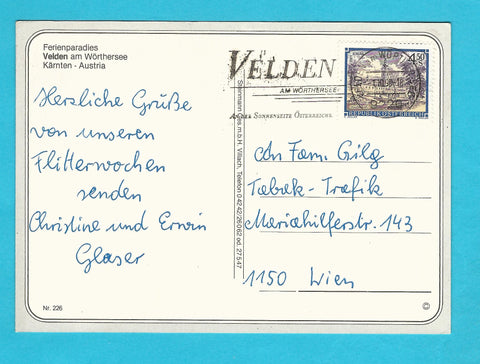 Ferienparadies
Velden am Wörthersee
Kärnten - Austria
Herzliche Grüße
von unseren
Flitterwochen
senden
Christine und Erwin
Glaser
Nr. 226
VELDEN
AM WÖRTHERSEE
AN DER SONNENSEITE ÖSTERREICHS
4.50
REPUBLIK ÖSTERREICH
An Fam. Gilg
Tabak-Trafik
Mariahilferstr. 143
1150 Wien
©